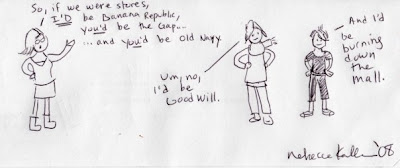 So, if we were stores,
I'D be Banana Republic,
you'd be the Gap...
...and you'd be Old Navy.
Um, no,
I'd be
Goodwill.
And I'd
be
burning
down
the
mall.
'08